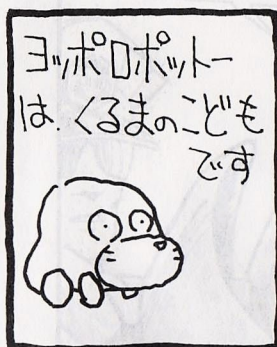 ヨッポロポットー
は、くるまのこども
です